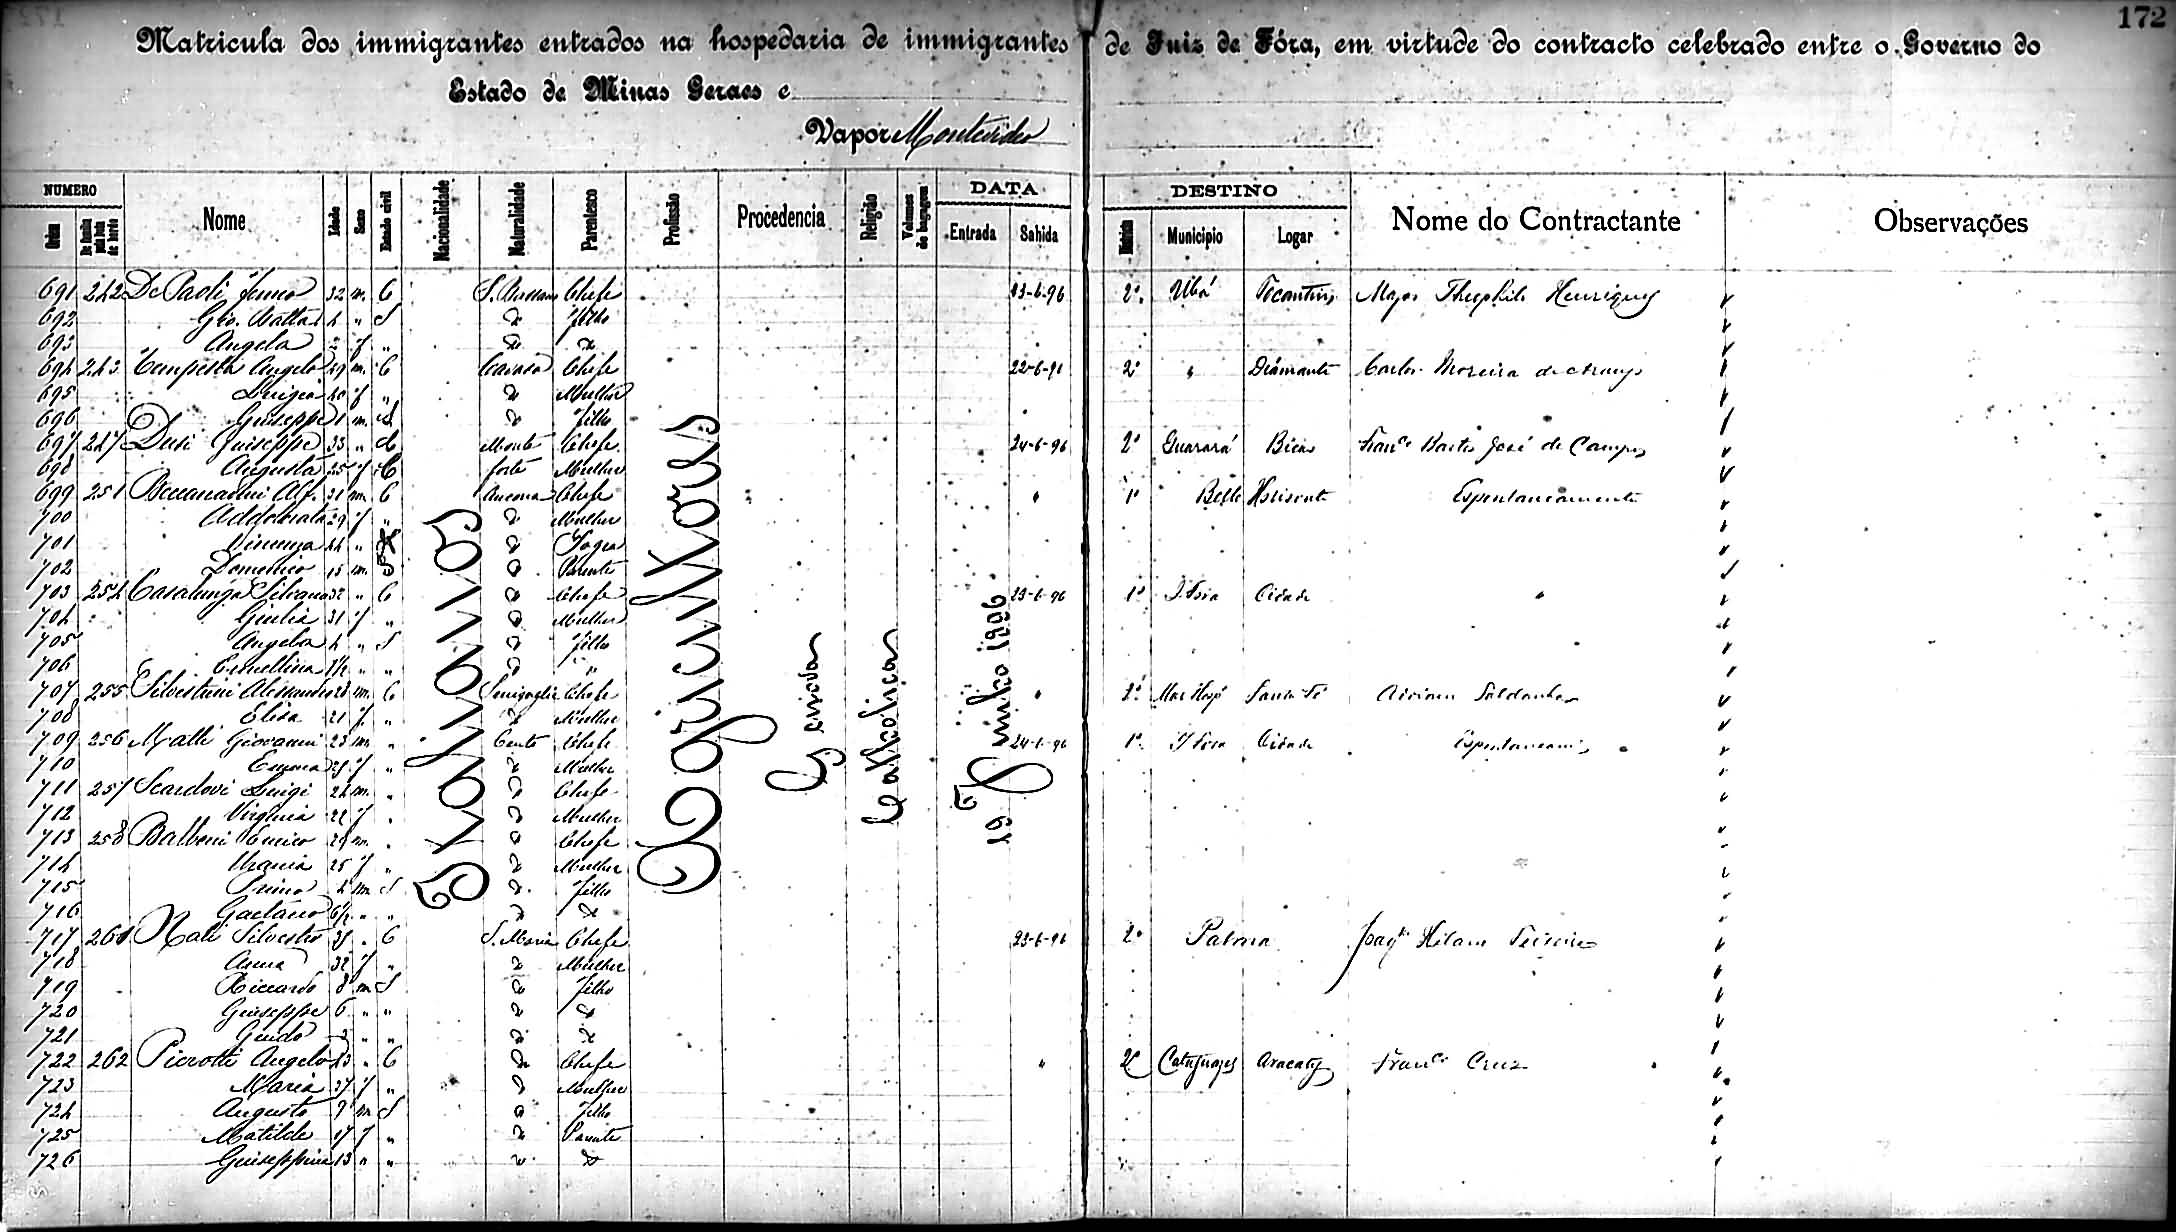 172
Matricula dos immigrantes entrados na hospedaria de immigrantes de Juiz de Fóra, em virtude do contracto celebrado entre o Governo do
Estado de Minas Geraes e
Vapor Montevideo
NUMERO
Ordem
Nome
Idade
Sexo
Estado civil
Nacionalidade
Naturalidade
Parentesco
Profissão
Procedencia
Religião
Volumes de bagagem
DATA
Entrada
Sahida
DESTINO
Municipio
Logar
Nome do Contractante
Observações
Italianos
Agricultores
Genova
Catholica
19 Junho 1896
691 242 De Paoli 32 m. C Chefe 23-6-96 2ª Ubá Tocantins Major Theophilo Henriques
692 Gio. Batta 4 " S " Filho
693 Angela 2 f " " "
694 243 Angelo 49 m. C Chefe 22-6-96 2ª " Diamante Carlos Moreira de Araujo
695 Luigia 40 f " " Mulher
696 Giuseppe 1 m. S " Filho
697 247 Dusi Giuseppe 33 " C Monte Chefe 24-6-96 2ª Guarará Bicas Franco Bastos José de Campos
698 Augusta 25 f C forte Mulher
699 251 Beccanadini Alf. 31 m. C Ancona Chefe " 1ª Bello Horisonte Espontaneamente
700 Addolorata 29 f " " Mulher
701 Vincenza 44 " " Sogra
702 Domenico 15 m. S " Parente
703 254 Casalunga Silvano 32 " C " Chefe 23-6-96 1ª J. Fora Cidade "
704 Giulia 31 f " " Mulher
705 Angela 4 " S " Filho
706 Ermellina 1/2 " " " "
707 255 Silvestrini Alessandro 28 m. C Senigaglia Chefe " 2ª Mar Hespª Santa Fé Saldanha
708 Elisa 21 f. " " Mulher
709 256 Matti Giovanni 23 m. " Cento Chefe 24-6-96 1ª J Fora Cidade Espontaneamte
710 Emma 25 f " " Mulher
711 257 Scardovi Luigi 24 m. " " Chefe
712 Virginia 22 f " " Mulher
713 258 Balboni Enrico 29 m. " " Chefe
714 Urania 25 f " " Mulher
715 Primo 4 m S " Filho
716 Gaetano 6/12 " " " "
717 261 Nali Silvestro 35 " C S. Maria Chefe 23-6-96 2ª Palma Joaqm Hilario Teixeira
718 Anna 32 f " " Mulher
719 Riccardo 8 m S " Filho
720 Giuseppe 6 " " " "
721 Guido 3 " " " "
722 262 Pierotti Angelo 43 " C " Chefe " 2ª Cataguazes Aracaty Franco Cruz
723 Maria 37 f " " Mulher
724 Augusto 9 m S " Filho
725 Matilde 17 f " " Parente
726 Giuseppina 13 " " " "